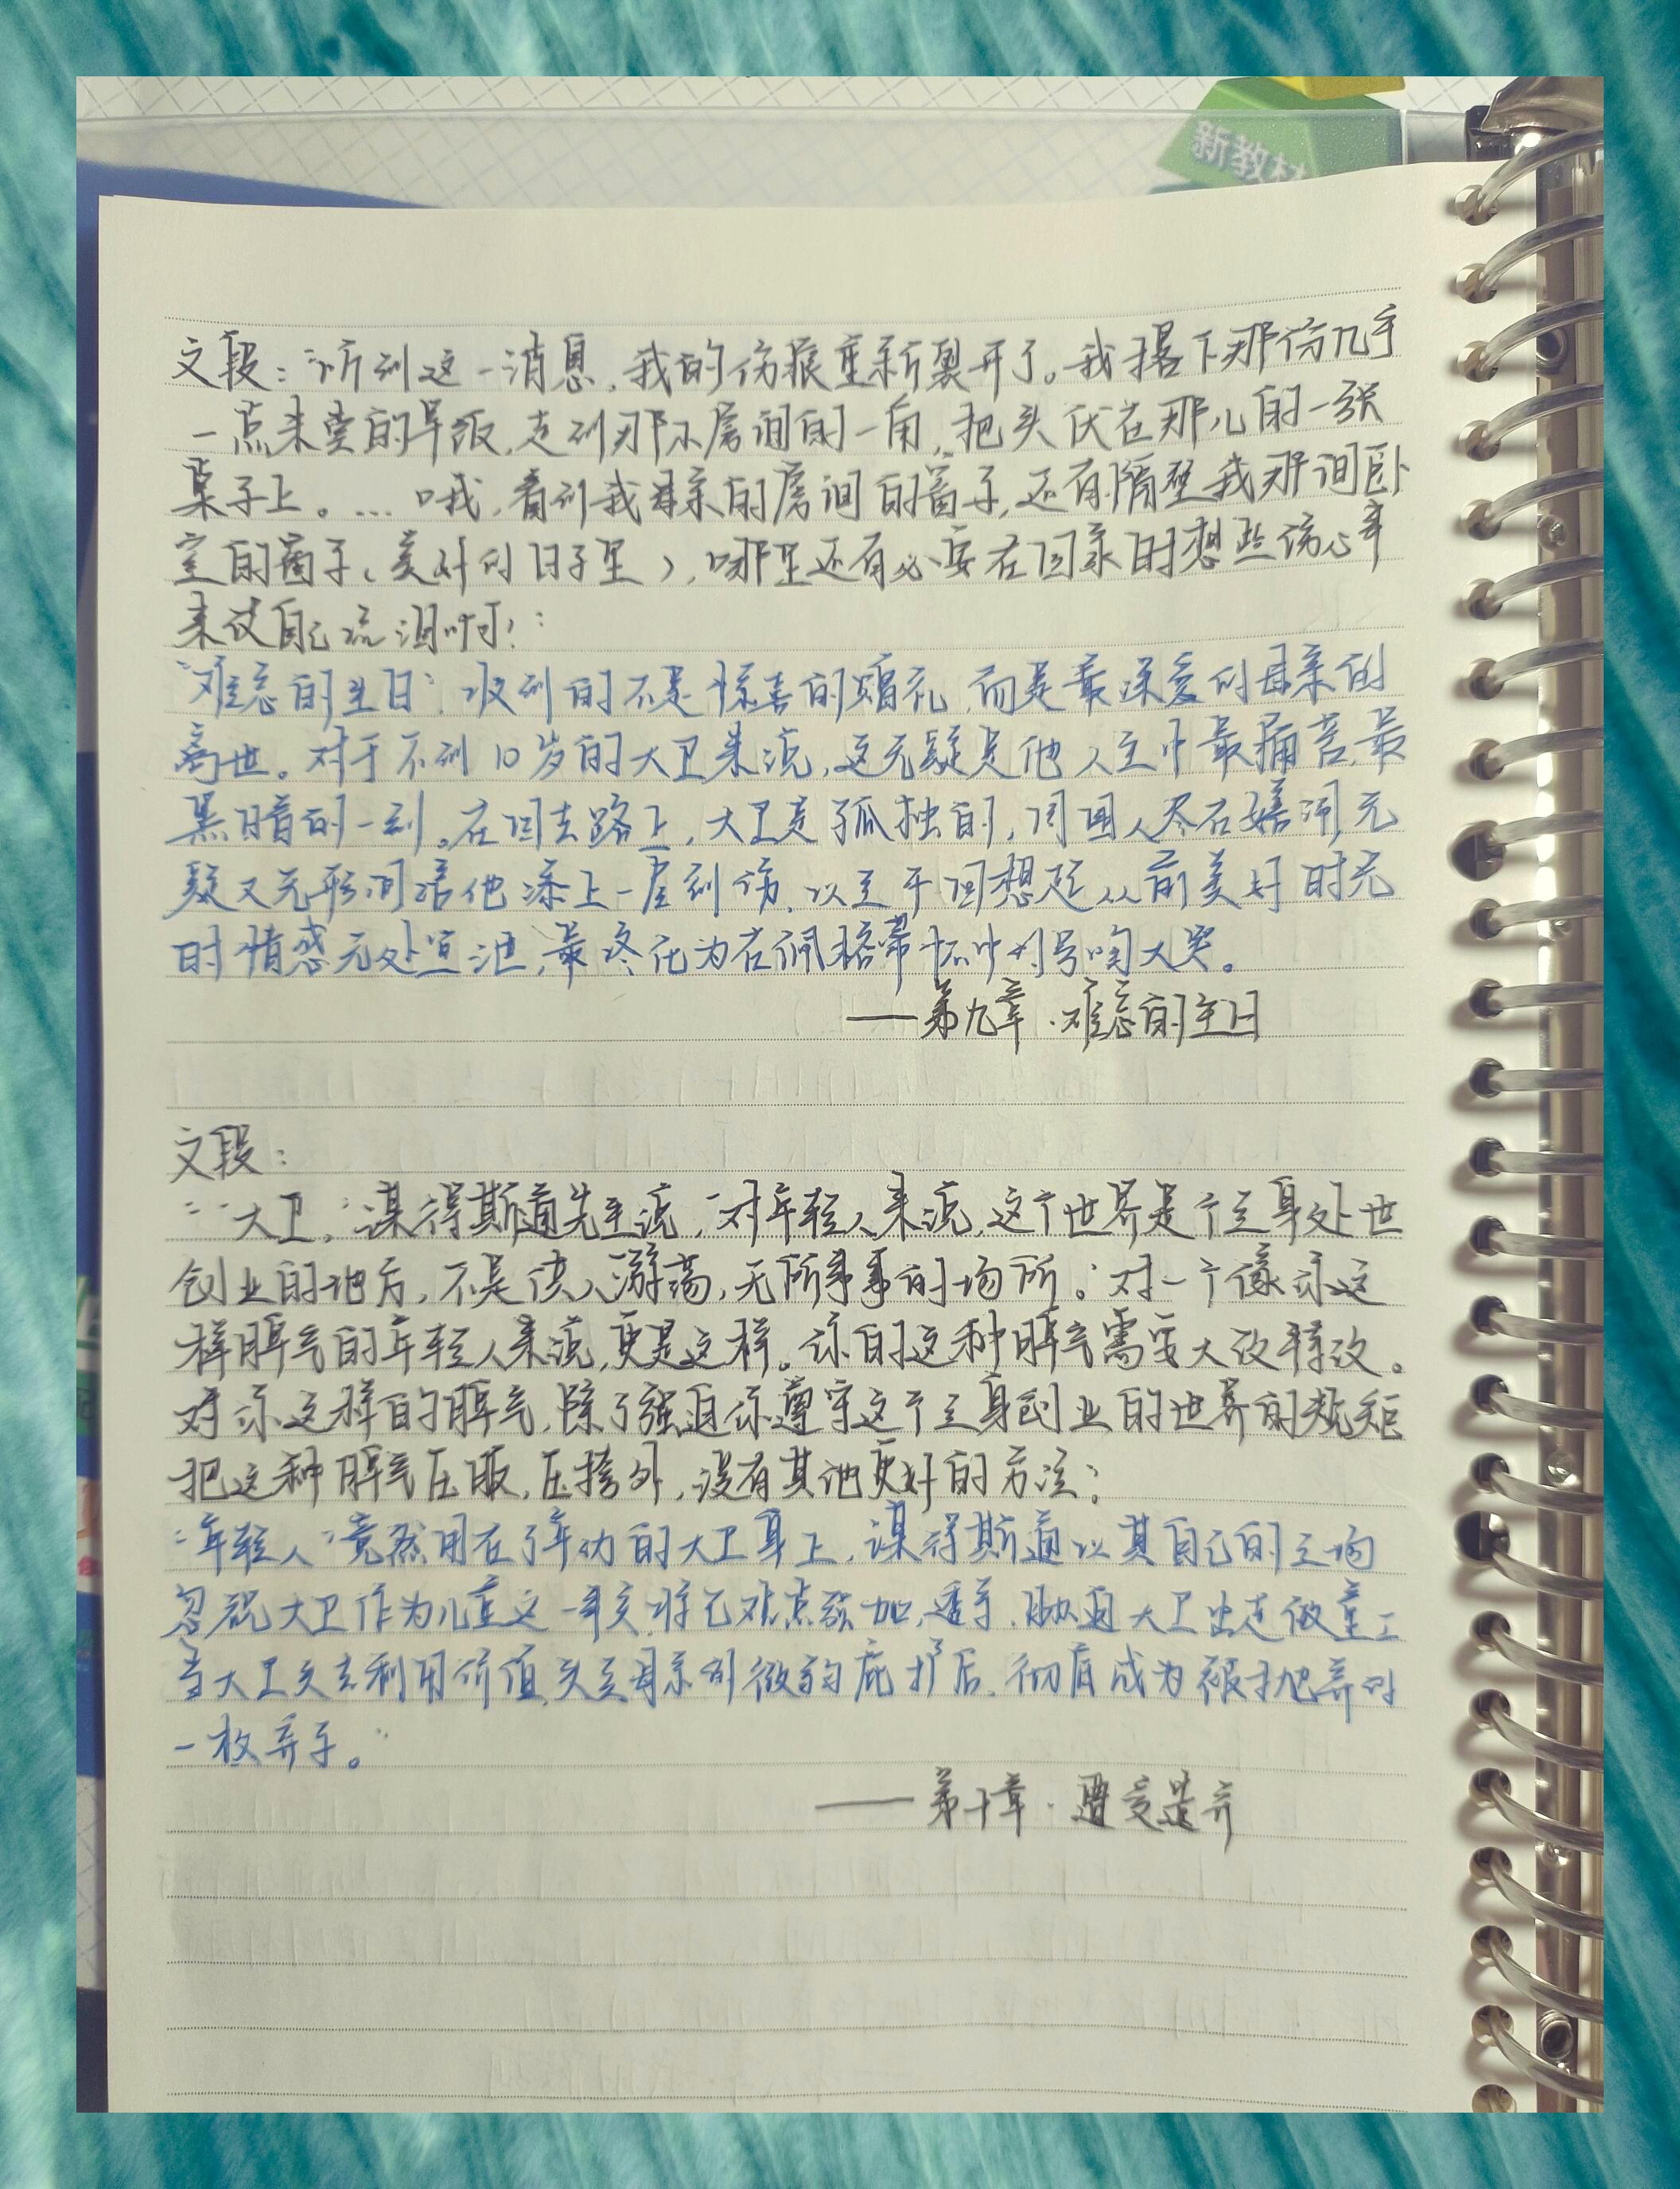 新教材
文段：“听到这一消息，我的伤痕重新裂开了。我撂下那份几乎
一点未吃的早饭，走到那小房间的一角，把头伏在那儿的一张
桌子上。…哦，看到我母亲的房间的窗子，还有隔壁我那间卧
室的窗子（美好的日子里），哪里还有必要在回家时想些伤心事
来使自己流泪啊！”
“难忘的生日”，收到的不是惊喜的赠礼，而是最深爱的母亲的
离世。对于不到10岁的大卫来说，这无疑是他人生中最痛苦、最
黑暗的一刻。在回去路上，大卫是孤独的，周围人尽在嬉闹，无
疑又无形间给他添上一层创伤，以至于回想起从前美好时光
时情感无处宣泄，最终化为在佩格蒂怀中的号啕大哭。
——第九章·难忘的生日
文段：
“‘大卫，’谋得斯通先生说，‘对年轻人来说，这个世界是个立身处世
创业的地方，不是供人游荡，无所事事的场所。’对一个像你这
样脾气的年轻人来说，更是这样。你的这种脾气需要大改特改。
对你这样的脾气，除了强迫你遵守这个立身创业的世界的规矩
把这种脾气压服，压挎外，没有其他更好的方法；
“年轻人”竟然用在了年幼的大卫身上，谋得斯通以其自己的立场
忽视大卫作为儿童这一事实，将它观点强加，逼于，胁迫大卫出走做童工
当大卫失去利用价值，失去母亲的微弱庇护后，彻底成为被抛弃的
一枚弃子。”
——第十章·遭受遗弃